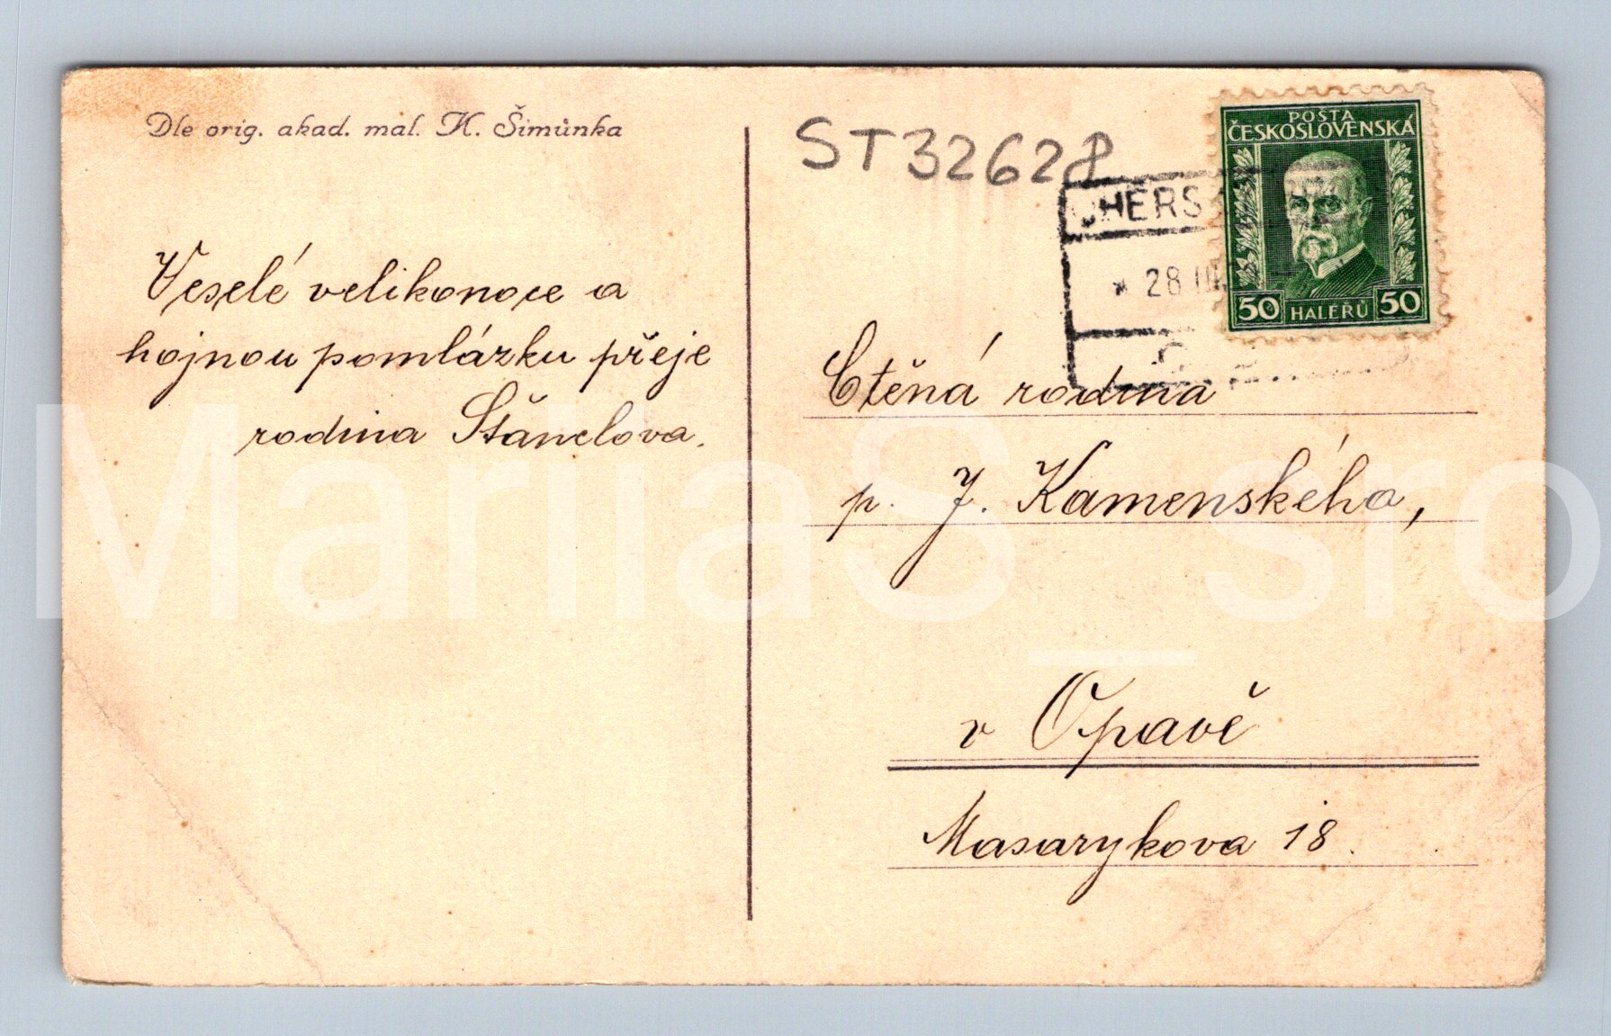 Dle orig. akad. mal. K. Šimůnka
Veselé velikonoce a
hojnou pomlázku přeje
rodina Štänclova.
ST32628
POŠTA
ČESKOSLOVENSKÁ
50 HALÉŘŮ 50
28 III
Ctěná rodina
p. J. Kamenského,
v Opavě
Masarykova 18.
MariiaS_sro